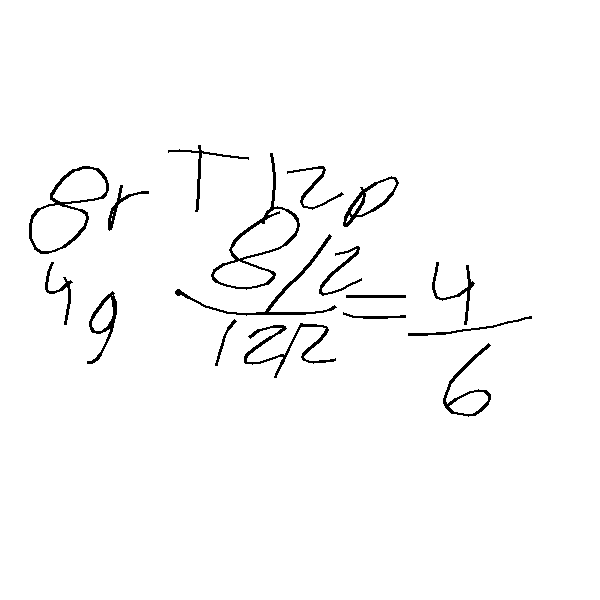 8r T 12p
4g 8/2 = 4
12/2 6